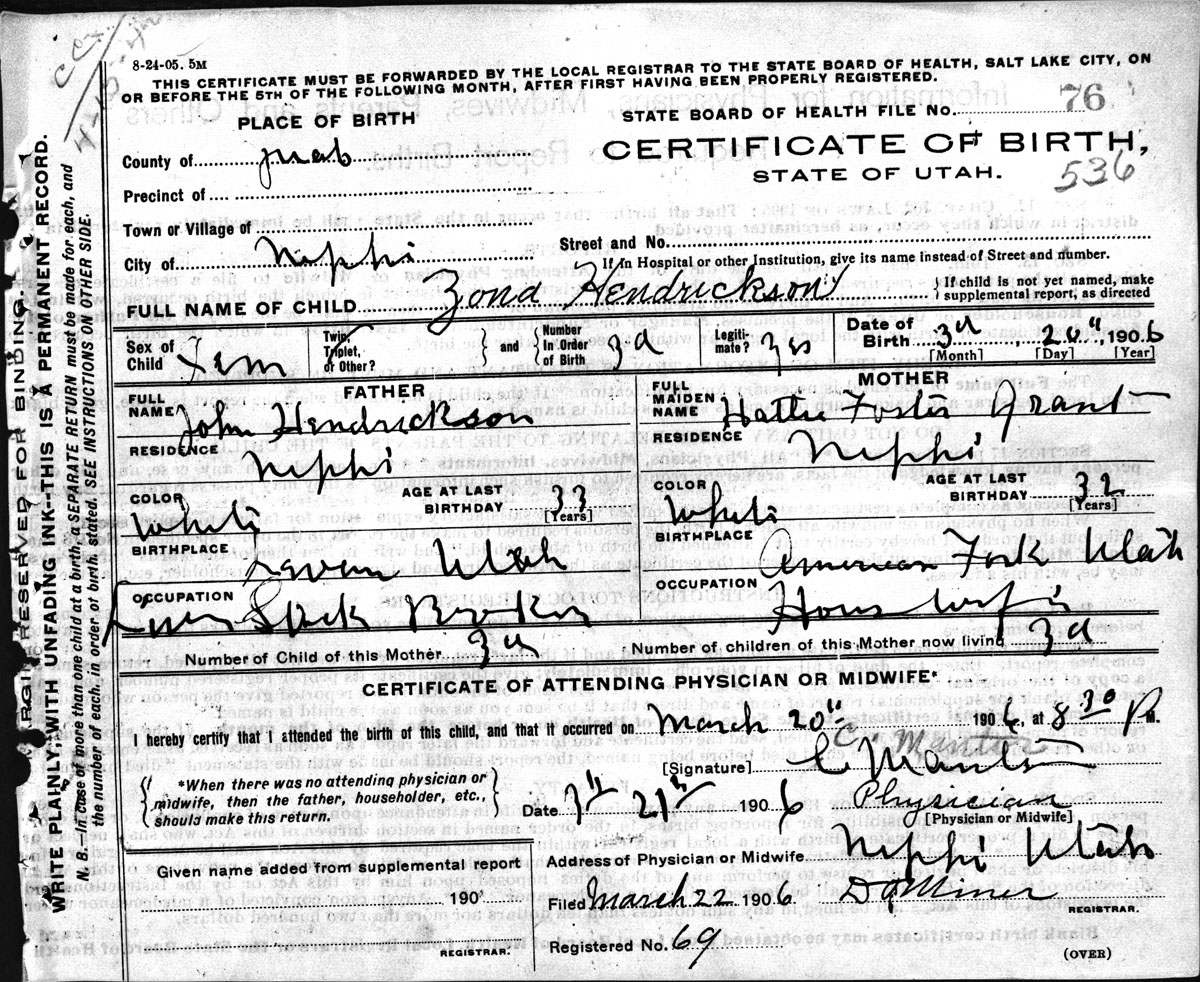 8-24-05. 5M
THIS CERTIFICATE MUST BE FORWARDED BY THE LOCAL REGISTRAR TO THE STATE BOARD OF HEALTH, SALT LAKE CITY, ON
OR BEFORE THE 5TH OF THE FOLLOWING MONTH, AFTER FIRST HAVING BEEN PROPERLY REGISTERED.
STATE BOARD OF HEALTH FILE No. 76
PLACE OF BIRTH
CERTIFICATE OF BIRTH,
STATE OF UTAH.
536
County of Juab
Precinct of
Town or Village of
City of Nephi
Street and No.
If In Hospital or other Institution, give its name instead of Street and number.
FULL NAME OF CHILD Zona Hendrickson
If child is not yet named, make
supplemental report, as directed
Sex of Child Fem
Twin, Triplet, or Other?
and
Number In Order of Birth 3d
Legiti-mate? Yes
Date of Birth 3d 20" 1906
[Month] [Day] [Year]
FATHER
FULL NAME John Hendrickson
RESIDENCE Nephi
COLOR White
AGE AT LAST BIRTHDAY 33
[Years]
BIRTHPLACE Levan Utah
OCCUPATION Live Stock Broker
MOTHER
FULL MAIDEN NAME Hattie Foster Grant
RESIDENCE Nephi
COLOR White
AGE AT LAST BIRTHDAY 32
[Years]
BIRTHPLACE American Fork Utah
OCCUPATION House wife
Number of Child of this Mother 3d
Number of children of this Mother now living 3d
CERTIFICATE OF ATTENDING PHYSICIAN OR MIDWIFE*
I hereby certify that I attended the birth of this child, and that it occurred on March 20" 1906, at 8 30 P M.
[Signature]
*When there was no attending physician or
midwife, then the father, householder, etc.,
should make this return.
Date 21 1906
Physician
[Physician or Midwife]
Given name added from supplemental report
190
REGISTRAR.
Address of Physician or Midwife Nephi Utah
Filed March 22 1906
REGISTRAR.
Registered No. 69
(OVER)
MARGIN RESERVED FOR BINDING
WRITE PLAINLY, WITH UNFADING INK--THIS IS A PERMANENT RECORD.
N. B.—In case of more than one child at a birth, a SEPARATE RETURN must be made for each, and
the number of each, in order of birth, stated. SEE INSTRUCTIONS ON OTHER SIDE.